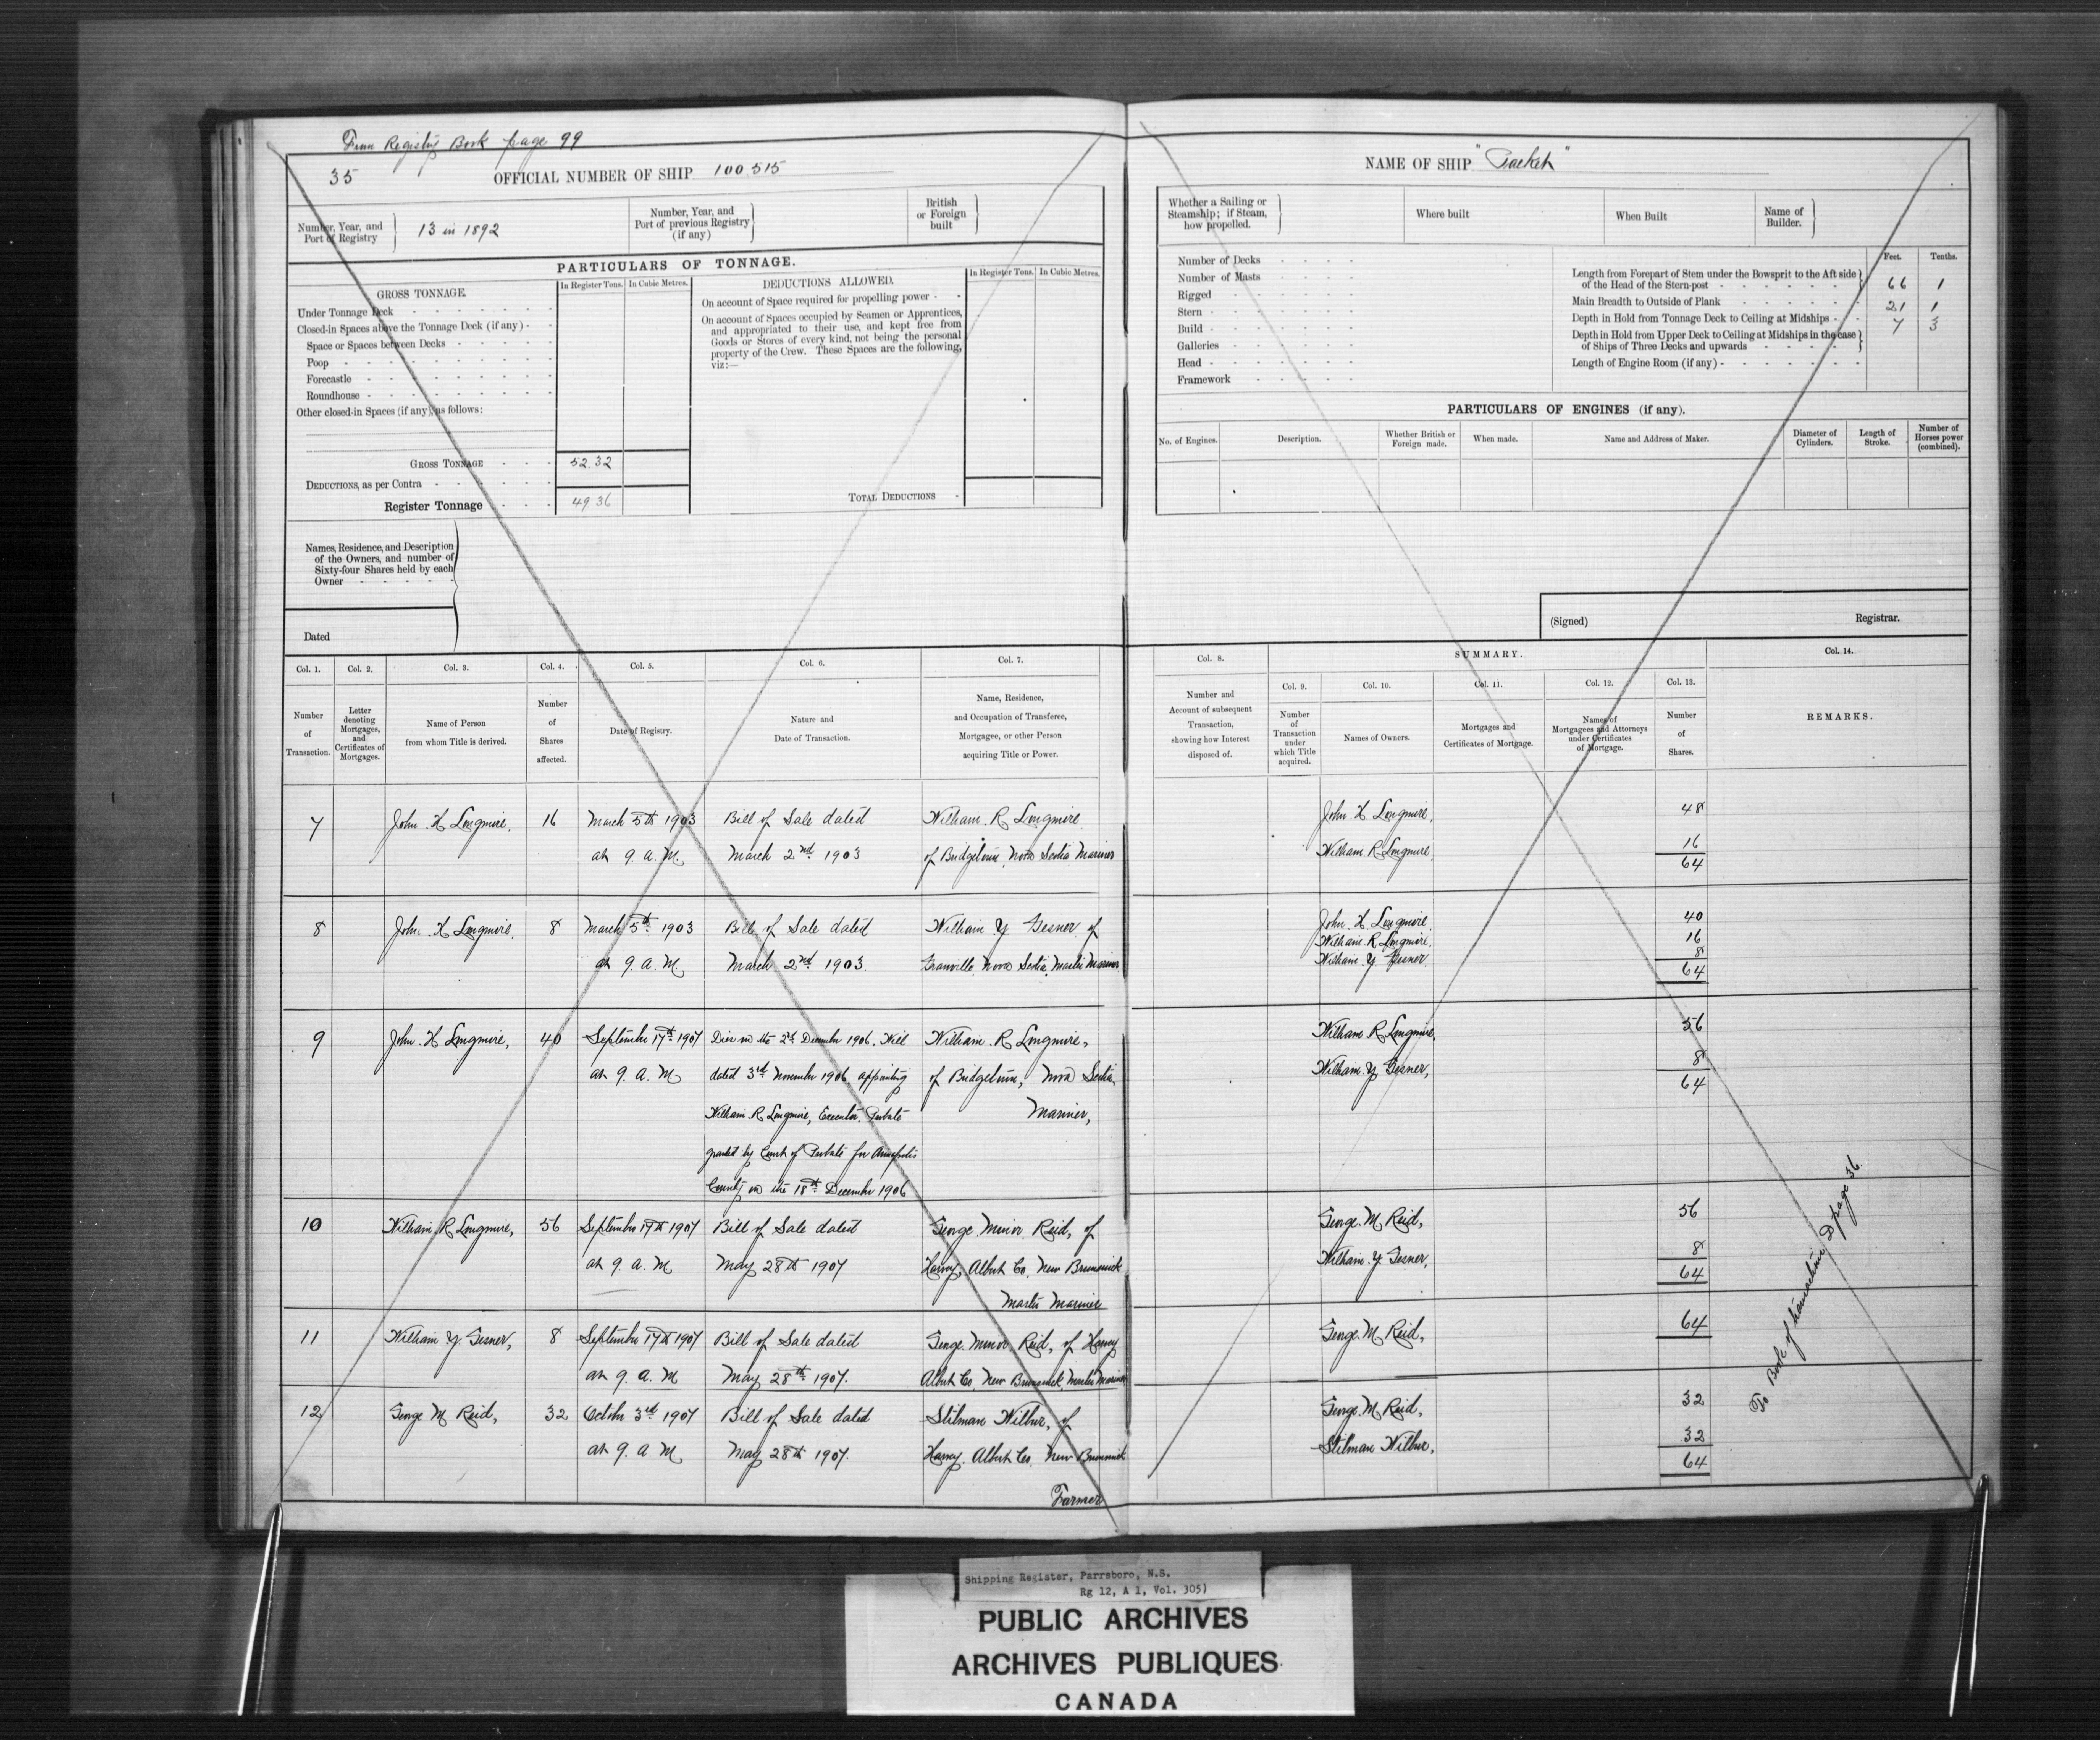 From Registry Book page 99
35
OFFICIAL NUMBER OF SHIP 100.515
Number, Year, and
Port of Registry
13 in 1892
Number, Year, and
Port of previous Registry
(if any)
British
or Foreign
built
PARTICULARS OF TONNAGE.
GROSS TONNAGE.
In Register Tons.
In Cubic Metres.
Under Tonnage Deck
Closed-in Spaces above the Tonnage Deck (if any)
Space or Spaces between Decks
Poop
Forecastle
Roundhouse
Other closed-in Spaces (if any), as follows:
GROSS TONNAGE 52.32
DEDUCTIONS, as per Contra
Register Tonnage 49.36
DEDUCTIONS ALLOWED.
In Register Tons.
In Cubic Metres.
On account of Space required for propelling power
On account of Spaces occupied by Seamen or Apprentices,
and appropriated to their use, and kept free from
Goods or Stores of every kind, not being the personal
property of the Crew. These Spaces are the following,
viz:—
TOTAL DEDUCTIONS
Names, Residence, and Description
of the Owners, and number of
Sixty-four Shares held by each
Owner
Dated
NAME OF SHIP "Packet"
Whether a Sailing or
Steamship; if Steam,
how propelled.
Where built
When Built
Name of
Builder.
Number of Decks
Number of Masts
Rigged
Stern
Build
Galleries
Head
Framework
Feet.
Tenths.
Length from Forepart of Stem under the Bowsprit to the Aft side
of the Head of the Stern-post 66 1
Main Breadth to Outside of Plank 21 1
Depth in Hold from Tonnage Deck to Ceiling at Midships 7 3
Depth in Hold from Upper Deck to Ceiling at Midships in the case
of Ships of Three Decks and upwards
Length of Engine Room (if any)
PARTICULARS OF ENGINES (if any).
No. of Engines.
Description.
Whether British or
Foreign made.
When made.
Name and Address of Maker.
Diameter of
Cylinders.
Length of
Stroke.
Number of
Horses power
(combined).
(Signed)
Registrar.
Col. 1.
Number
of
Transaction.
Col. 2.
Letter
denoting
Mortgages,
and
Certificates of
Mortgages.
Col. 3.
Name of Person
from whom Title is derived.
Col. 4.
Number
of
Shares
affected.
Col. 5.
Date of Registry.
Col. 6.
Nature and
Date of Transaction.
Col. 7.
Name, Residence,
and Occupation of Transferee,
Mortgagee, or other Person
acquiring Title or Power.
Col. 8.
Number and
Account of subsequent
Transaction,
showing how Interest
disposed of.
SUMMARY.
Col. 9.
Number
of
Transaction
under
which Title
acquired.
Col. 10.
Names of Owners.
Col. 11.
Mortgages and
Certificates of Mortgage.
Col. 12.
Names of
Mortgagees and Attorneys
under Certificates
of Mortgage.
Col. 13.
Number
of
Shares.
Col. 14.
REMARKS.
7 John H Longmire, 16 March 5th 1903 Bill of Sale dated William R Longmire John H Longmire, 48
at 9. a. M. March 2nd 1903 of Bridgetown, Nova Scotia Mariner William R Longmire, 16
64
8 John H Longmire, 8 March 5th 1903 Bill of Sale dated William Y Gesner of John H Longmire, 40
William R Longmire, 16
at 9. a. M March 2nd 1903 Granville, Nova Scotia, Master Mariner William Y Gesner, 8
64
9 John H Longmire, 40 September 17th 1907 Died on the 2nd December 1906. Will William R Longmire, William R Longmire, 56
at 9. a. M dated 3rd November 1906 appointing of Bridgetown, Nova Scotia, William Y Gesner, 8
64
William R Longmire, Executor. Probate Mariner,
granted by Court of Probate for Annapolis
County on the 18th December 1906
10 William R Longmire, 56 September 17th 1907 Bill of Sale dated George Minor Reid, of George M Reid, 56
at 9. a. M May 28th 1907 Harvey, Albert Co, New Brunswick William Y Gesner, 8
64
Master Mariner
11 William Y Gesner, 8 September 17th 1907 Bill of Sale dated George Minor Reid, of Harvey George M Reid, 64
at 9. a. M May 28th 1907. Albert Co, New Brunswick, Master Mariner
12 George M Reid, 32 October 3rd 1907 Bill of Sale dated Stilman Wilbur, of George M Reid, 32
at 9. a. M May 28th 1907. Harvey, Albert Co, New Brunswick Stilman Wilbur, 32
64
Farmer
To Book of transactions D page 36.
Shipping Register, Parrsboro, N.S.
Rg 12, A 1, Vol. 305)
PUBLIC ARCHIVES
ARCHIVES PUBLIQUES
CANADA